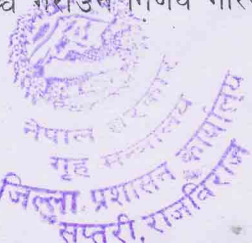 गराउने निर्णय
नेपाल सरकार
गृह मन्त्रालय
जिल्ला प्रशासन कार्यालय
सप्तरी, राजविराज